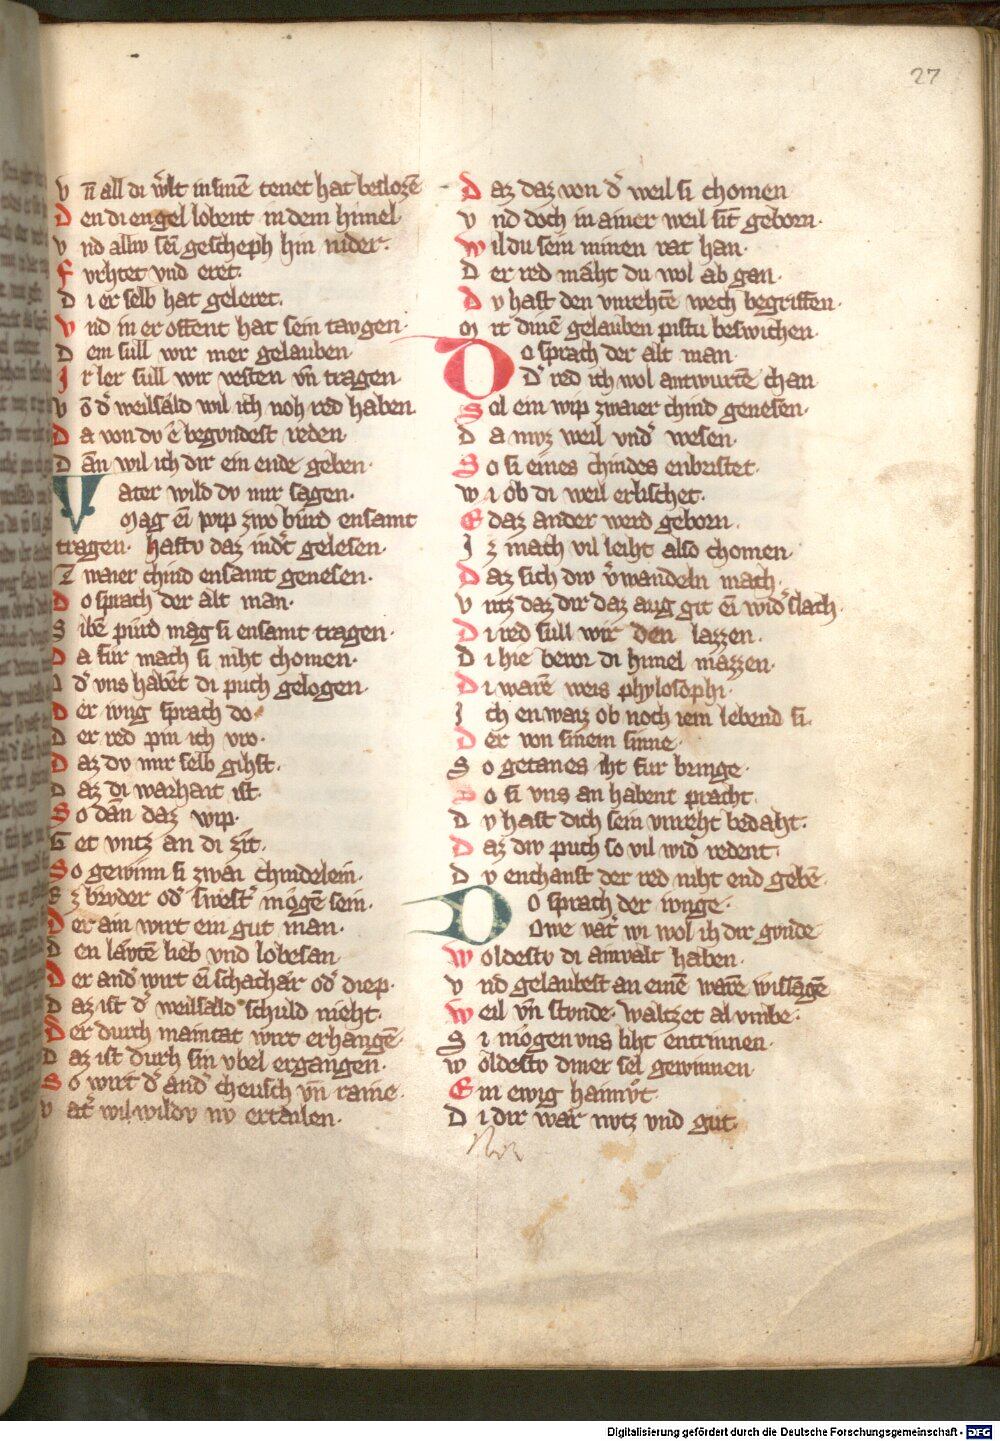 27
V n̄ all di w̓lt in sinē tenet hat beslozē
D en di engel lobent in dem himel
V nd alliv sei gescheph hin nider.
F vrhtet vnd eret.
D i er selb hat geleret.
V nd in er offent hat sein tavgen.
D em sull wir mer gelauben
I r ler sull wir vesten vn̄ tragen
V ō d̓ weilsáld wil ich noh red haben.
D a von dv ê begvndest reden
D añ wil ich dir ein ende geben.
V ater wild dv mir sagen.
Mag ei wip zwo bùrd ensamt
tragen. hastv daz indˀt gelesen.
Z waier chind ensamt genesen.
D o sprach der alt man.
S ibē pùrd mag si ensamt tragen.
D a fùr mach si niht chomen.
O d̓ vns habēt di puch gelogen.
D er ivng sprach do.
D er red pin ich vro.
D az dv mir selb gihst.
D az di warhait ist.
S o dān daz wip.
G et vntz an di zit.
S o gewinn si zwai chindelein.
E z brvder od̓ swest̓ mógē sein.
D er ain wirt ein gut man.
D en lávtē lieb vnd lobesan
D er and̓ wirt ei schachár od̓ diep.
D az ist d̓ weilsáld schuld nieht.
D er durch maintat wirt erhangē.
D az ist durh sin vbel ergangen.
S o wirt d̓ and̓ cheusch vn̄ raine.
V at̓ wil wildv nv ertailen.
D az daz von d̓ weil si chomen
V nd doch in ainer weil sīt geborn.
W il du sein minen rat han.
D er red máht du wol ab gan.
D v hast den vnrehtē wech begriffen.
M it dinē gelauben pistu beswichen.
D o sprach der alt man
D̓ red ich wol antwurtē chan
S ol ein wip zwaier chind genesen.
D a mvz weil vnd̓ wesen.
S o si eines chindes enbristet.
W i ob di weil erlischet.
E daz ander werd geborn.
I z mach vil leiht also chomen.
D az sich div v̓wandeln mach.
V ntz daz dir daz aug git ei wid̓slach.
D i red sull wir den lazzen.
D i hie bevor di himel mazzen.
D i warē weis phylosophi.
I ch enwaiz ob noch iem lebend si.
D er von sinem sinne.
S o getanes iht fur bringe.
D o si vns an habent pracht.
D v hast dich sein vnreht bedaht.
D az div puch so vil wid̓ redent.
D v enchanst der red niht end gebē.
D o sprach der ivnge.
Owe vat̓ wi wol ih dir gvnde
W oldestv di ainvalt haben.
V nd gelaubest an einē warē wissagē
W eil vn̄ stvnde. waltzet al vmbe.
S i mógen vns liht entrinnen.
W oldestv diner sel gewinnen
E in ewig haimv̓t.
D i dir wár nvtz vnd gut.